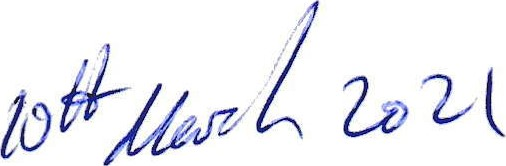 10th March 2021